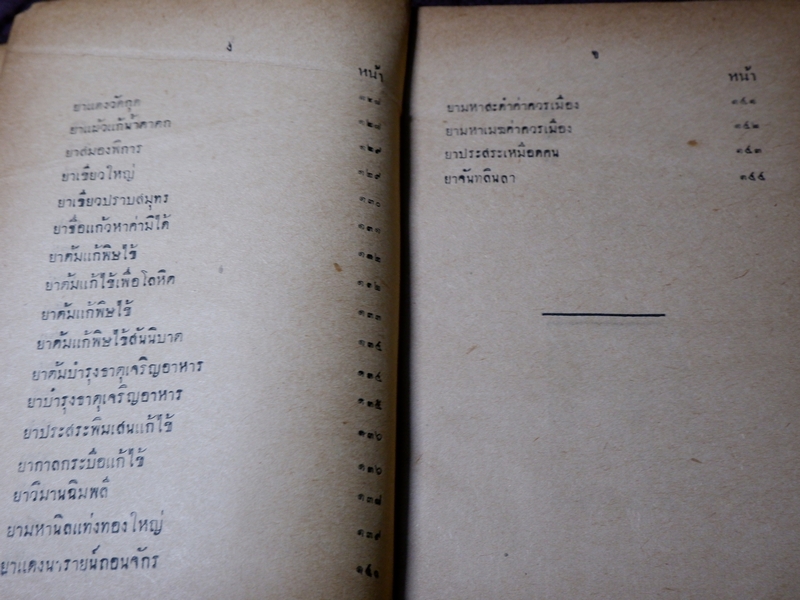 ง
หน้า
ยาแดงวัดกุด ๑๒๘
ยาแผ้วแก้น้ำตาตก ๑๒๘
ยาสมองพิการ ๑๒๙
ยาเขียวใหญ่ ๑๒๙
ยาเขียวปราบสมุทร ๑๓๐
ยาชื่อแก้วหาค่ามิได้ ๑๓๑
ยาต้มแก้พิษไข้ ๑๓๒
ยาต้มแก้ไข้เพื่อโลหิต ๑๓๒
ยาต้มแก้พิษไข้ ๑๓๓
ยาต้มแก้พิษไข้สันนิบาต ๑๓๔
ยาต้มบำรุงธาตุเจริญอาหาร ๑๓๔
ยาบำรุงธาตุเจริญอาหาร ๑๓๕
ยาประสระพิมเสนแก้ไข้ ๑๓๖
ยากาลกระบือแก้ไข้ ๑๓๖
ยาวิมานฉิมพลี ๑๓๗
ยามหานิลแท่งทองใหญ่ ๑๓๙
ยาแดงนารายน์ถอนจักร ๑๔๐
จ
หน้า
ยามหาสะดำค่าควรเมือง ๑๔๑
ยามหาเมฆค่าควรเมือง ๑๔๒
ยาประสระเหมือดคน ๑๔๓
ยาจันทลีนลา ๑๔๔